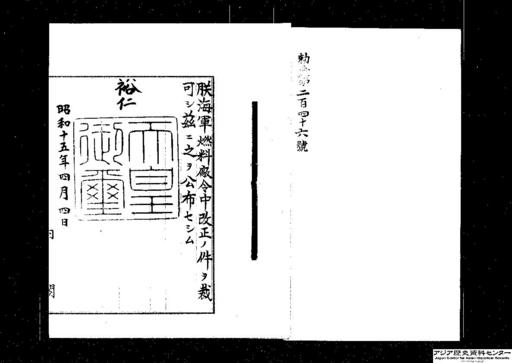 勅令第二百四十六號
朕海軍燃料廠令中改正ノ件ヲ裁
可シ茲ニ之ヲ公布セシム
裕仁
天皇御璽
昭和十五年四月四日
内閣
アジア歴史資料センター
Japan Center for Asian Historical Records